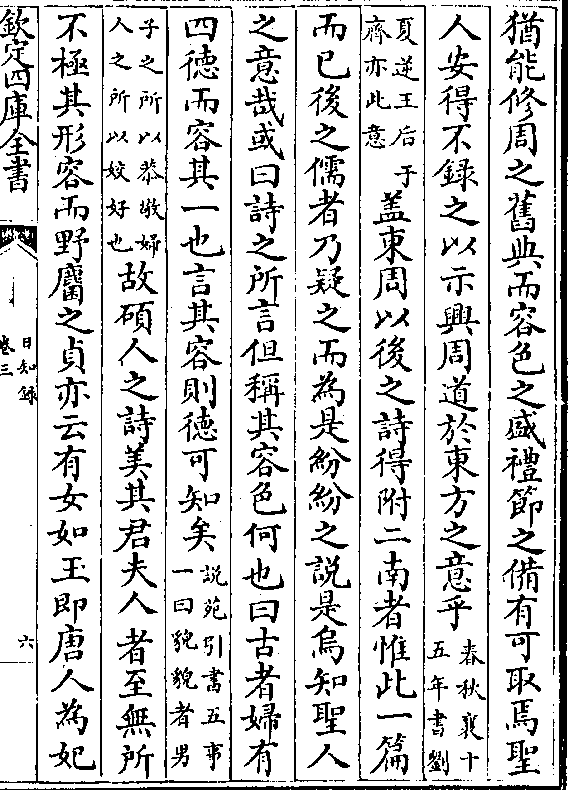 猶能修周之舊典而容色之盛禮節之備有可取焉聖
人安得不錄之以示興周道於東方之意乎春秋襄十五年書劉
夏逆王后于齊亦此意蓋東周以後之詩得附二南者惟此一篇
而已後之儒者乃疑之而為是紛紛之說是烏知聖人
之意哉或曰詩之所言但稱其容色何也曰古者婦有
四徳而容其一也言其容則徳可知矣說苑引書五事一曰貌貌者男
子之所以恭敬婦人之所以姣好也故碩人之詩美其君夫人者至無所
不極其形容而野麕之貞亦云有女如玉即唐人為妃
欽定四庫全書
日知錄
卷三
六